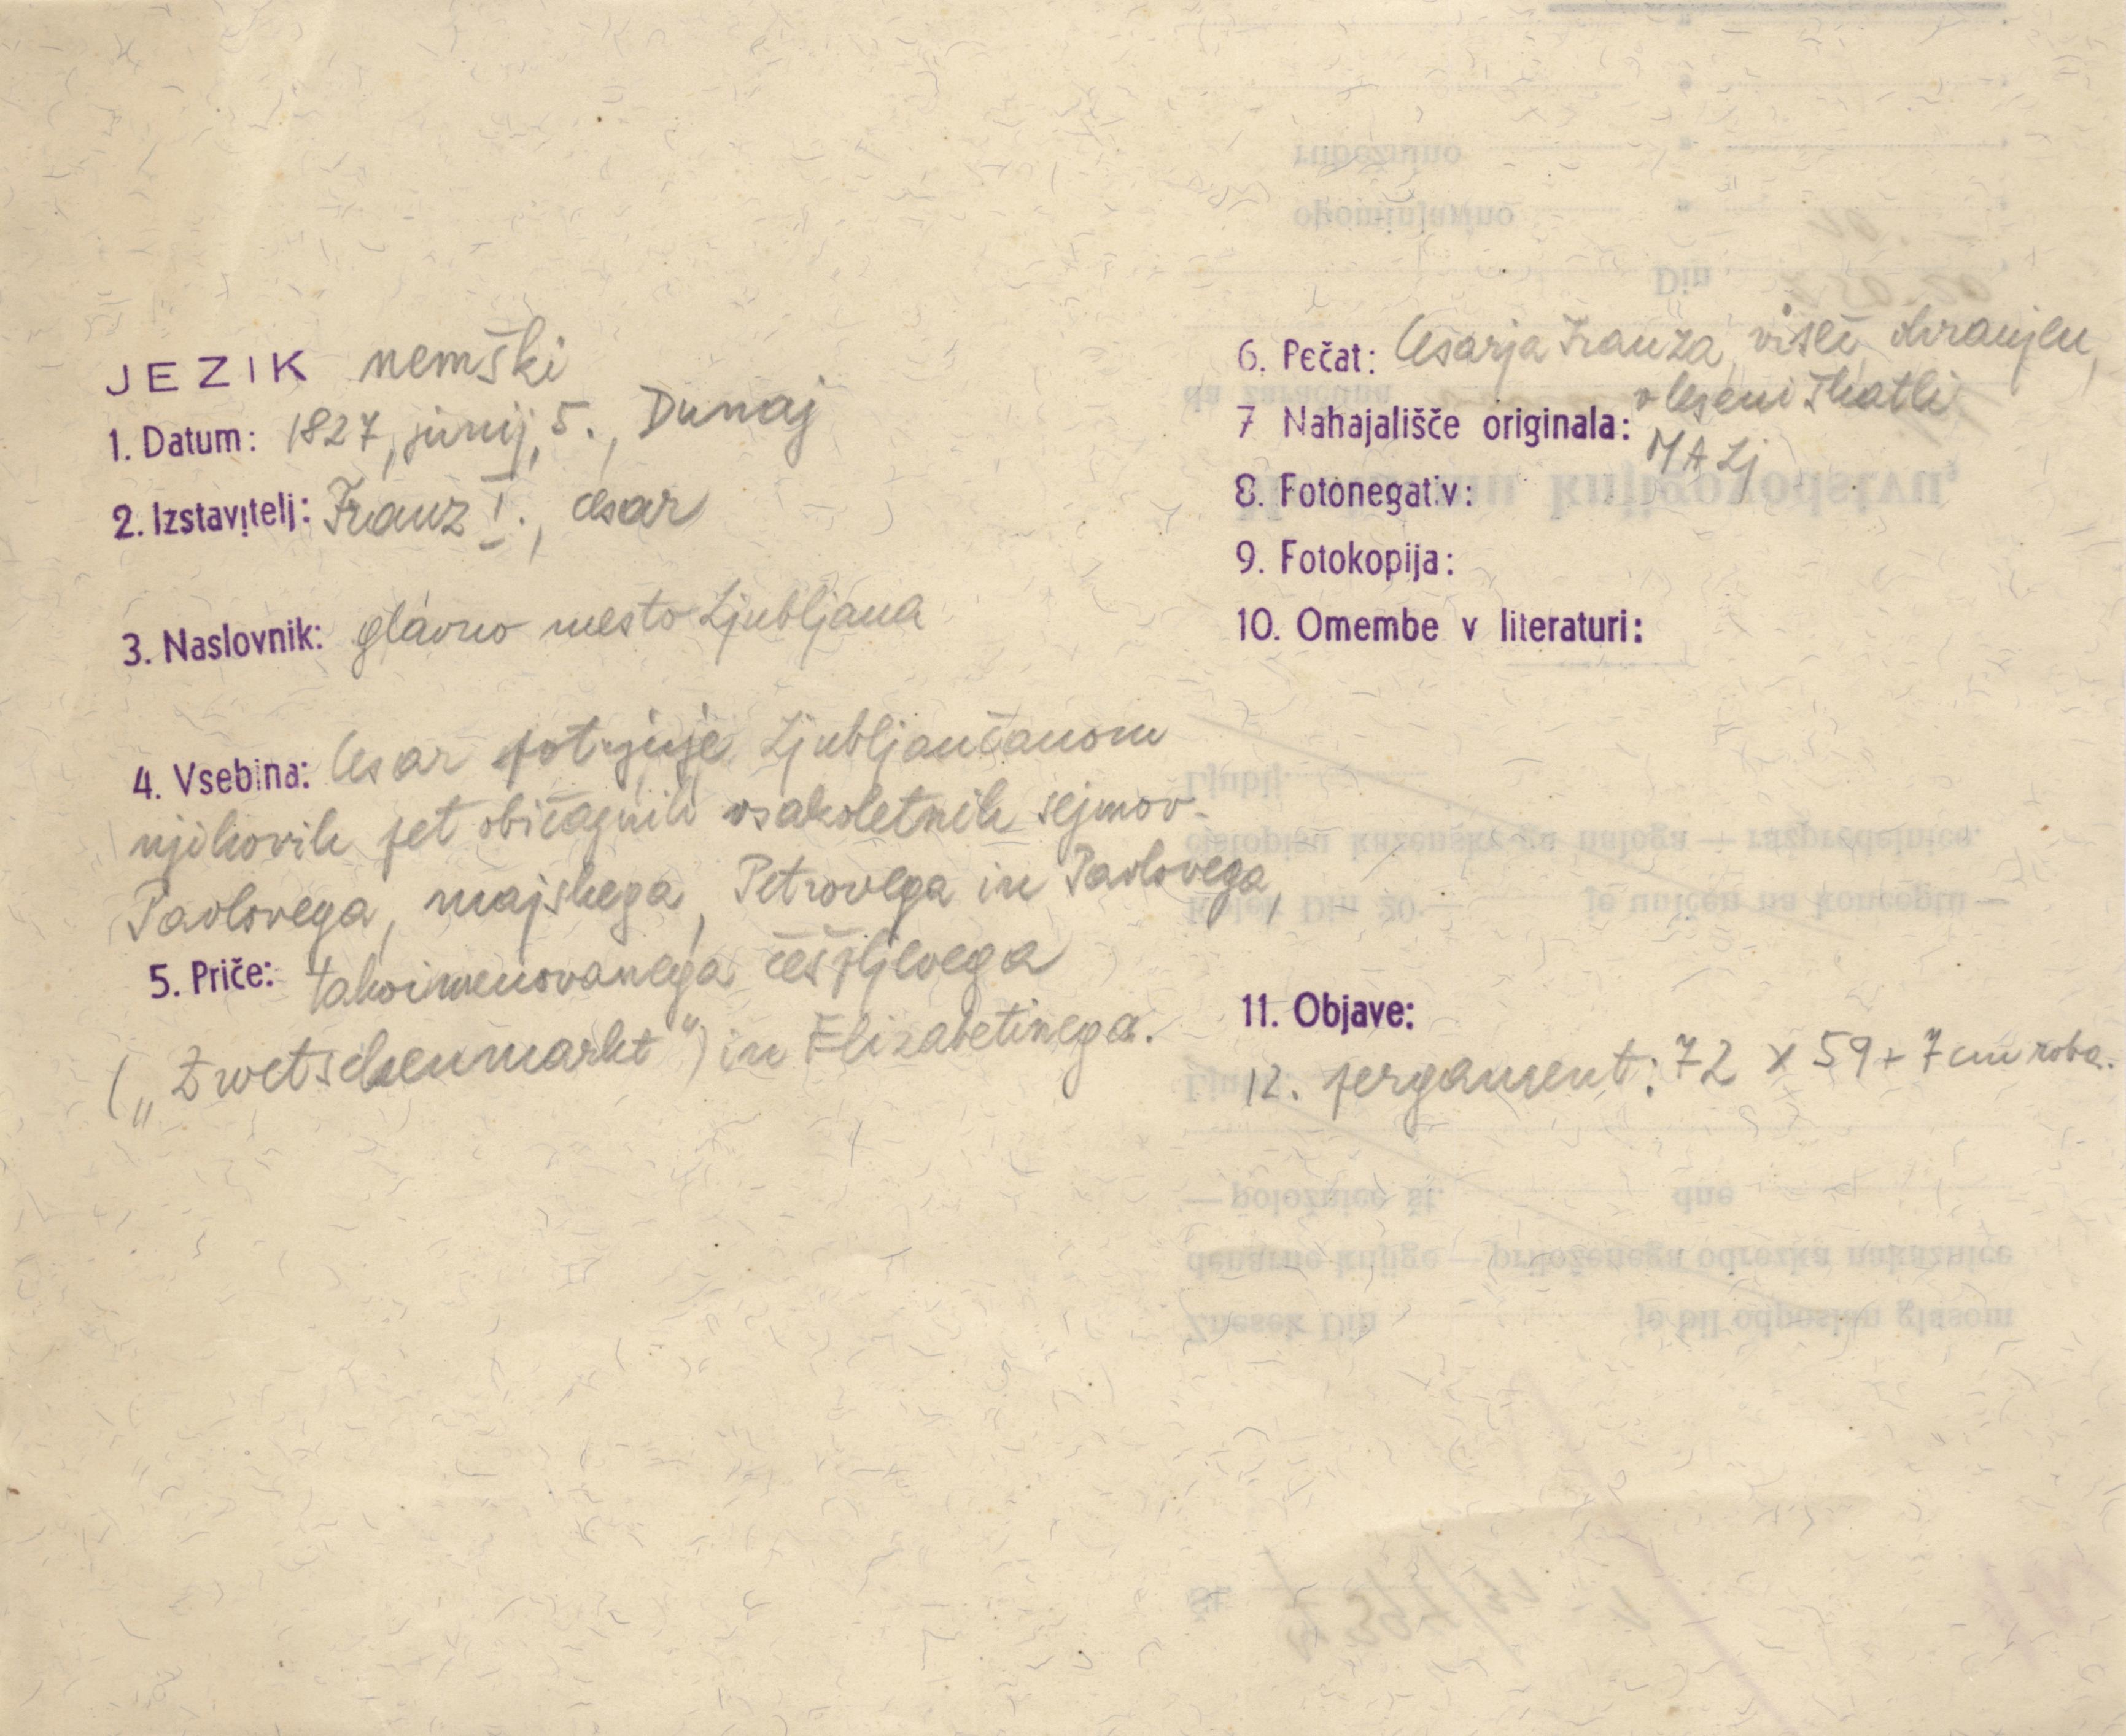 JEZIK nemški
1. Datum: 1827, junij, 5., Dunaj
2. Izstavitelj: Franz I., cesar
3. Naslovnik: glavno mesto Ljubljana
4. Vsebina: Cesar potrjuje Ljubljančanom
njihovih pet običajnih vsakoletnih sejmov.
Pavlovega, majskega, Petrovega in Pavlovega,
5. Priče: takoimenovanega češpljevega
(„Zwetschenmarkt") in Elizabetinega.
6. Pečat: Cesarja Franza, viseč, ohranjen,
v leseni škatli
7 Nahajališče originala: MALj
8. Fotonegativ:
9. Fotokopija:
10. Omembe v literaturi:
11. Objave:
12. pergament: 72 x 59 + 7 cm roba.